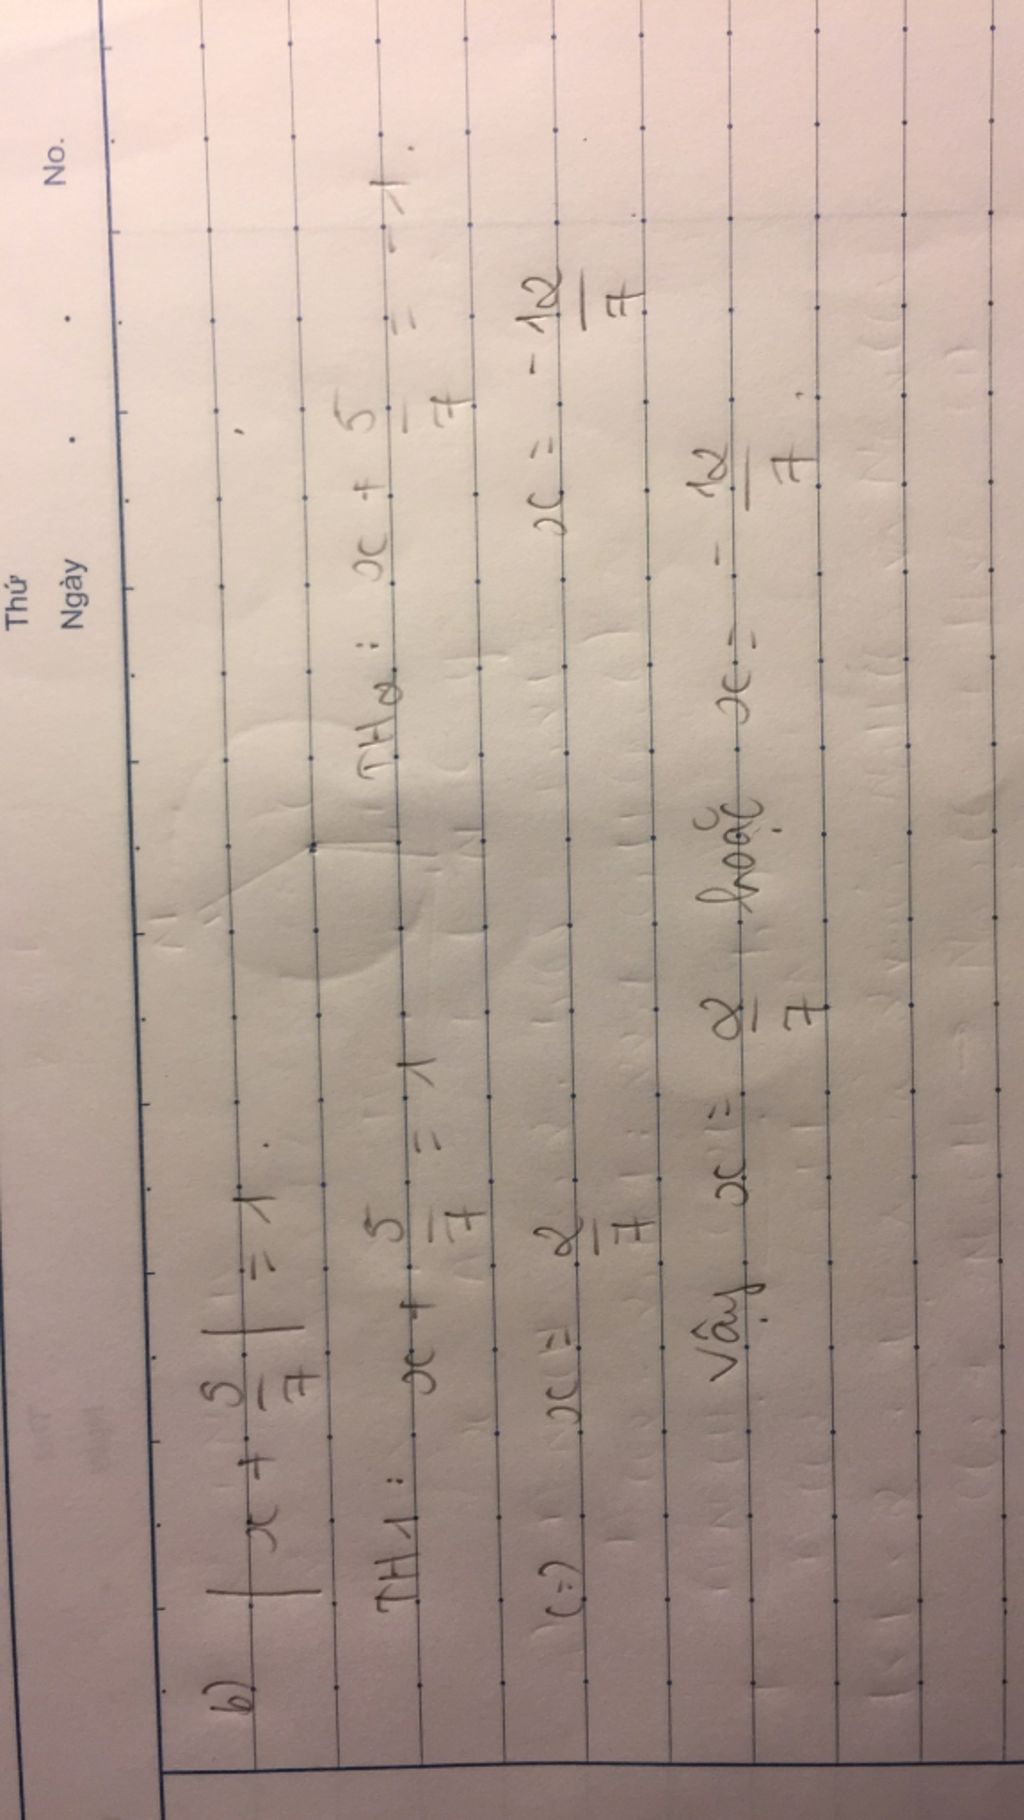 Thứ
Ngày . . No.
b) | x + 5/7 | = 1.
TH1: x + 5/7 = 1 TH2: x + 5/7 = -1.
(=) x = 2/7 x = - 12/7
Vậy x = 2/7 hoặc x = - 12/7.